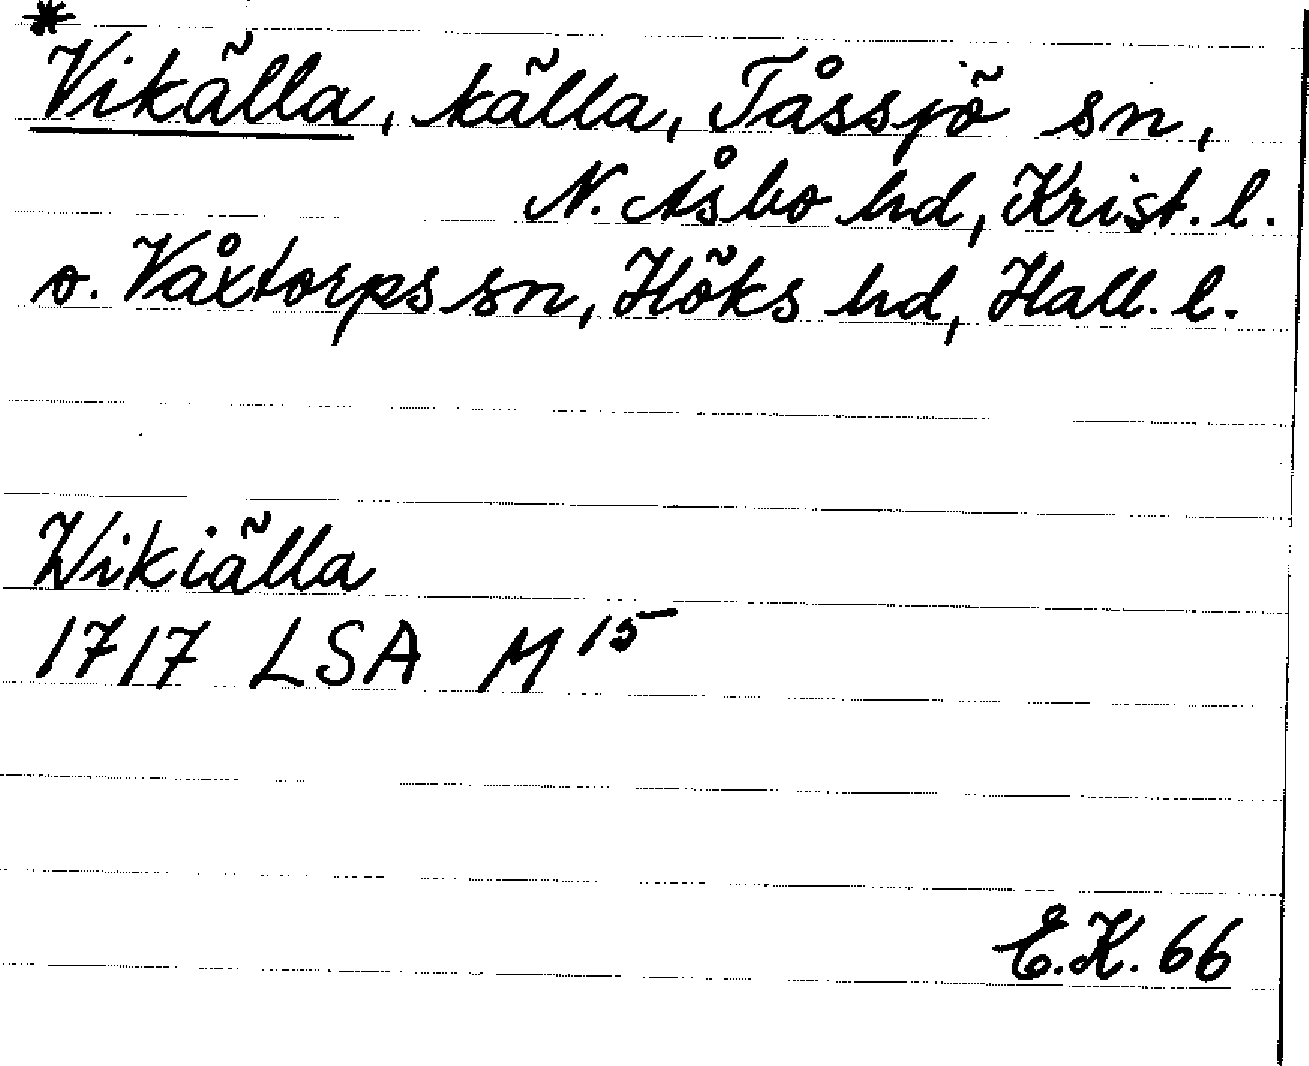 *
Vikälla, källa, Tåssjö sn,
N. Åsbo hd, Krist. l.
o. Våxtorps sn, Höks hd, Hall. l.
Wikiälla
1717 LSA M 15
E.K. 66